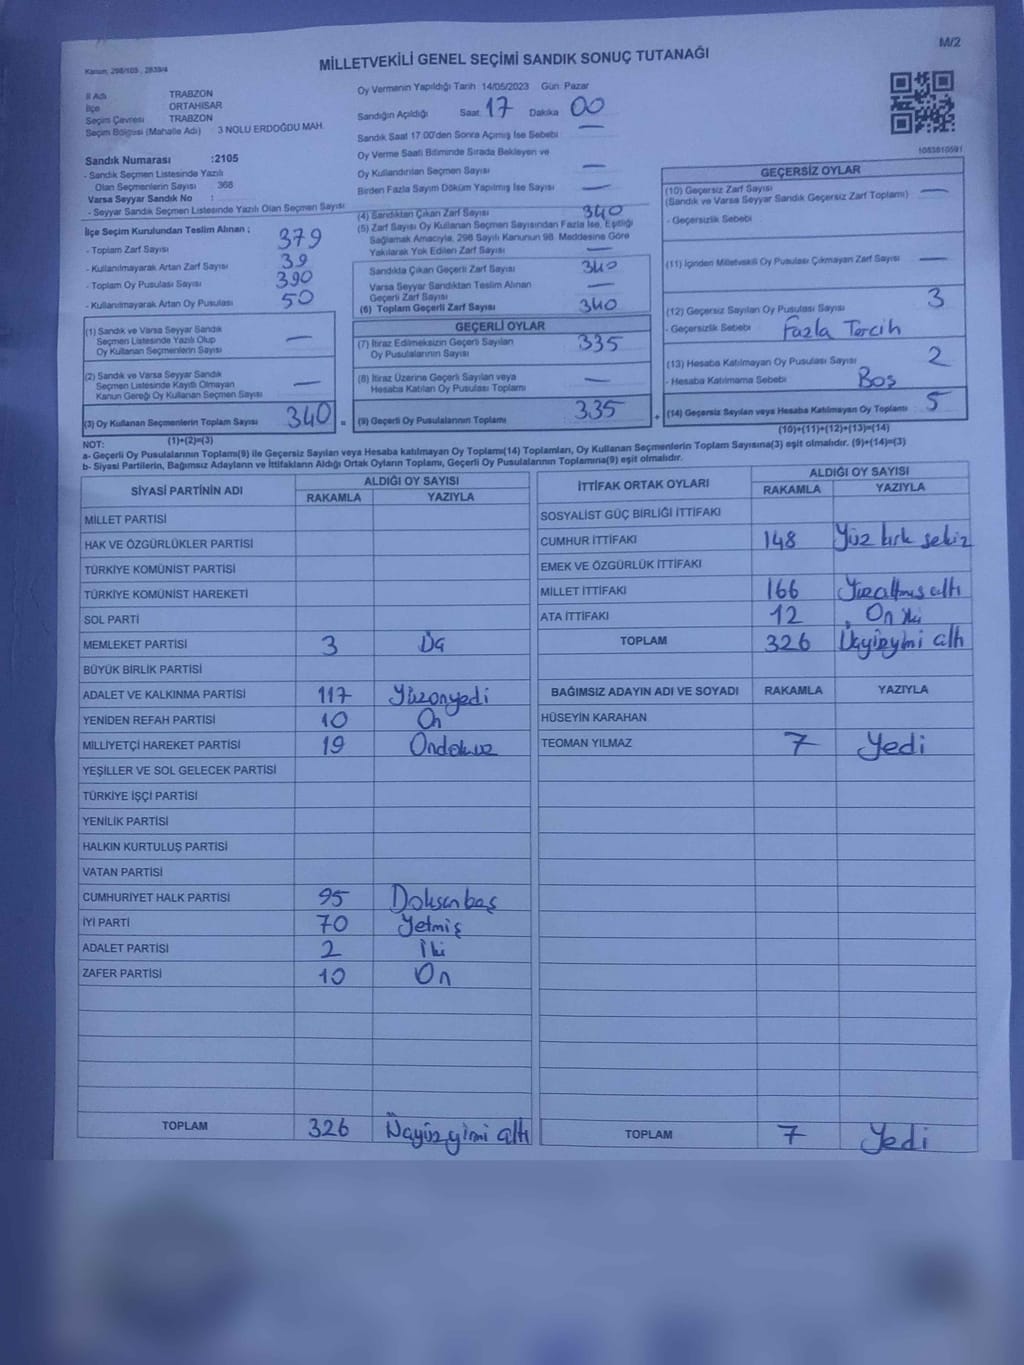 M/2
MİLLETVEKİLİ GENEL SEÇİMİ SANDIK SONUÇ TUTANAĞI
Kanun: 298/105 , 2839/4
İl Adı TRABZON
İlçe ORTAHİSAR
Seçim Çevresi TRABZON
Seçim Bölgesi (Mahalle Adı) : 3 NOLU ERDOĞDU MAH.
Sandık Numarası :2105
- Sandık Seçmen Listesinde Yazılı
Olan Seçmenlerin Sayısı : 368
Varsa Seyyar Sandık No :
- Seyyar Sandık Seçmen Listesinde Yazılı Olan Seçmen Sayısı
İlçe Seçim Kurulundan Teslim Alınan ;
- Toplam Zarf Sayısı 379
- Kullanılmayarak Artan Zarf Sayısı 39
- Toplam Oy Pusulası Sayısı 390
- Kullanılmayarak Artan Oy Pusulası 50
(1) Sandık ve Varsa Seyyar Sandık
Seçmen Listesinde Yazılı Olup
Oy Kullanan Seçmenlerin Sayısı —
(2) Sandık ve Varsa Seyyar Sandık
Seçmen Listesinde Kayıtlı Olmayan
Kanun Gereği Oy Kullanan Seçmen Sayısı —
(3) Oy Kullanan Seçmenlerin Toplam Sayısı 340 =
(1)+(2)=(3)
Oy Vermenin Yapıldığı Tarih :14/05/2023 Gün: Pazar
Sandığın Açıldığı Saat 17 Dakika 00
Sandık Saat 17:00'den Sonra Açımış İse Sebebi : —
Oy Verme Saati Bitiminde Sırada Bekleyen ve
Oy Kullandırılan Seçmen Sayısı —
Birden Fazla Sayım Döküm Yapılmış İse Sayısı —
(4) Sandıktan Çıkan Zarf Sayısı 340
(5) Zarf Sayısı Oy Kullanan Seçmen Sayısından Fazla İse, Eşitliği
Sağlamak Amacıyla, 298 Sayılı Kanunun 98. Maddesine Göre
Yakılarak Yok Edilen Zarf Sayısı —
Sandıkta Çıkan Geçerli Zarf Sayısı 340
Varsa Seyyar Sandıktan Teslim Alınan
Geçerli Zarf Sayısı —
(6) Toplam Geçerli Zarf Sayısı 340
GEÇERLİ OYLAR
(7) İtiraz Edilmeksizin Geçerli Sayılan
Oy Pusulalarının Sayısı 335
(8) İtiraz Üzerine Geçerli Sayılan veya
Hesaba Katılan Oy Pusulası Toplamı —
(9) Geçerli Oy Pusulalarının Toplamı 335 +
1083810591
GEÇERSİZ OYLAR
(10) Geçersiz Zarf Sayısı
(Sandık ve Varsa Seyyar Sandık Geçersiz Zarf Toplamı) —
- Geçersizlik Sebebi
(11) İçinden Milletvekili Oy Pusulası Çıkmayan Zarf Sayısı —
(12) Geçersiz Sayılan Oy Pusulası Sayısı 3
- Geçersizlik Sebebi Fazla Tercih
(13) Hesaba Katılmayan Oy Pusulası Sayısı 2
- Hesaba Katılmama Sebebi Boş
(14) Geçersiz Sayılan veya Hesaba Katılmayan Oy Toplamı 5
(10)+(11)+(12)+(13)=(14)
NOT:
a- Geçerli Oy Pusulasının Toplamı(9) ile Geçersiz Sayılan veya Hesaba katılmayan Oy Toplamı(14) Toplamları, Oy Kullanan Seçmenlerin Toplam Sayısına(3) eşit olmalıdır. (9)+(14)=(3)
b- Siyasi Partilerin, Bağımsız Adayların ve İttifakların Aldığı Ortak Oyların Toplamı, Geçerli Oy Pusulasının Toplamına(9) eşit olmalıdır.
SİYASİ PARTİNİN ADI ALDIĞI OY SAYISI
RAKAMLA YAZIYLA
MİLLET PARTİSİ
HAK VE ÖZGÜRLÜKLER PARTİSİ
TÜRKİYE KOMÜNİST PARTİSİ
TÜRKİYE KOMÜNİST HAREKETİ
SOL PARTİ
MEMLEKET PARTİSİ 3 Üç
BÜYÜK BİRLİK PARTİSİ
ADALET VE KALKINMA PARTİSİ 117 Yüzonyedi
YENİDEN REFAH PARTİSİ 10 On
MİLLİYETÇİ HAREKET PARTİSİ 19 Ondokuz
YEŞİLLER VE SOL GELECEK PARTİSİ
TÜRKİYE İŞÇİ PARTİSİ
YENİLİK PARTİSİ
HALKIN KURTULUŞ PARTİSİ
VATAN PARTİSİ
CUMHURİYET HALK PARTİSİ 95 Doksanbeş
İYİ PARTİ 70 Yetmiş
ADALET PARTİSİ 2 İki
ZAFER PARTİSİ 10 On
TOPLAM 326 Üçyüzyirmi altı
İTTİFAK ORTAK OYLARI ALDIĞI OY SAYISI
RAKAMLA YAZIYLA
SOSYALİST GÜÇ BİRLİĞİ İTTİFAKI
CUMHUR İTTİFAKI 148 Yüz kırk sekiz
EMEK VE ÖZGÜRLÜK İTTİFAKI
MİLLET İTTİFAKI 166 Yüzaltmış altı
ATA İTTİFAKI 12 On iki
TOPLAM 326 Üçyüzyirmi altı
BAĞIMSIZ ADAYIN ADI VE SOYADI RAKAMLA YAZIYLA
HÜSEYİN KARAHAN
TEOMAN YILMAZ 7 Yedi
TOPLAM 7 Yedi